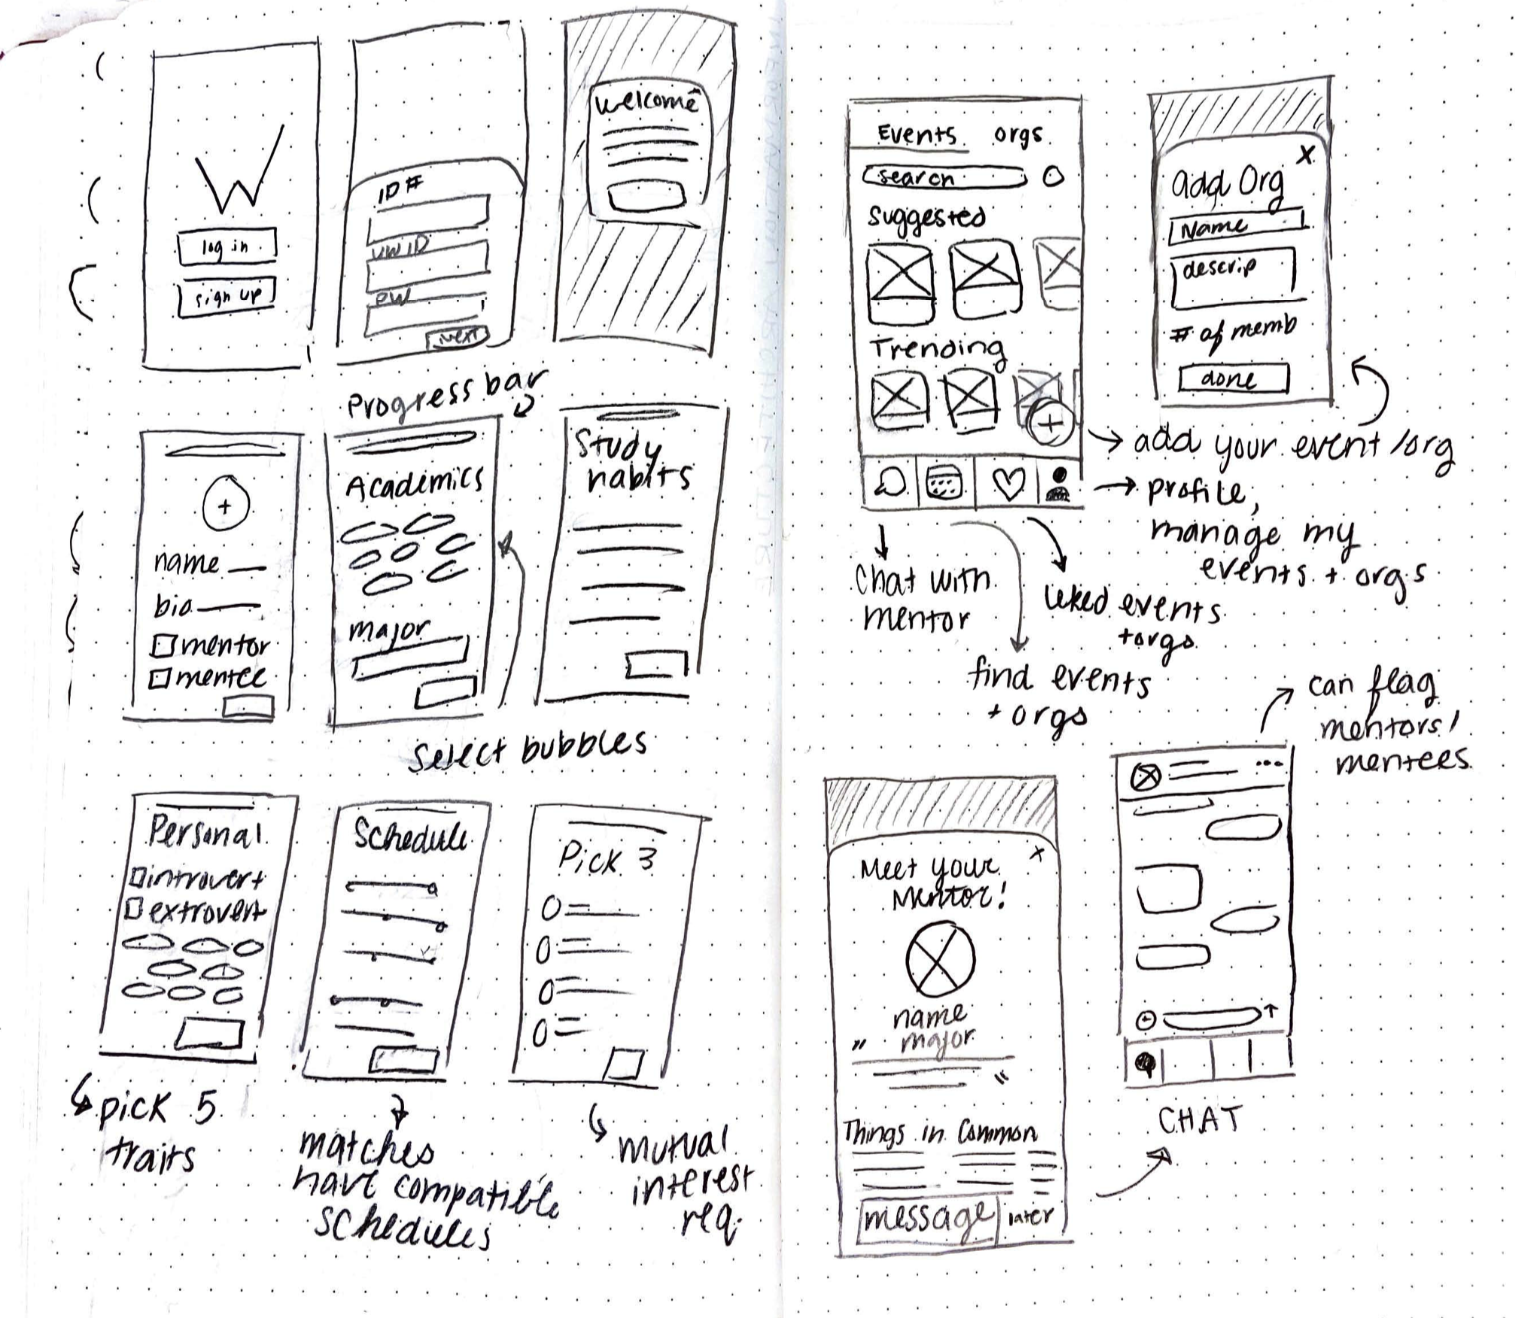 W
log in
sign up
ID #
UW ID
PW
NEXT
Welcome
Progress bar
name
bio
mentor
mentee
Academics
major
Study
habits
Select bubbles
Personal
introvert
extrovert
Schedule
Pick 3
pick 5
traits
matches
have compatible
schedules
mutual
interest
req.
Events orgs
search
Suggested
Trending
add Org
X
Name
descrip
# of memb
done
add your event/org
profile,
manage my
events + orgs
chat with
mentor
liked events
+orgs
find events
+ orgs
can flag
mentors/
mentees
Meet your
Mentor!
X
name
major
"
"
Things in Common
message
later
CHAT